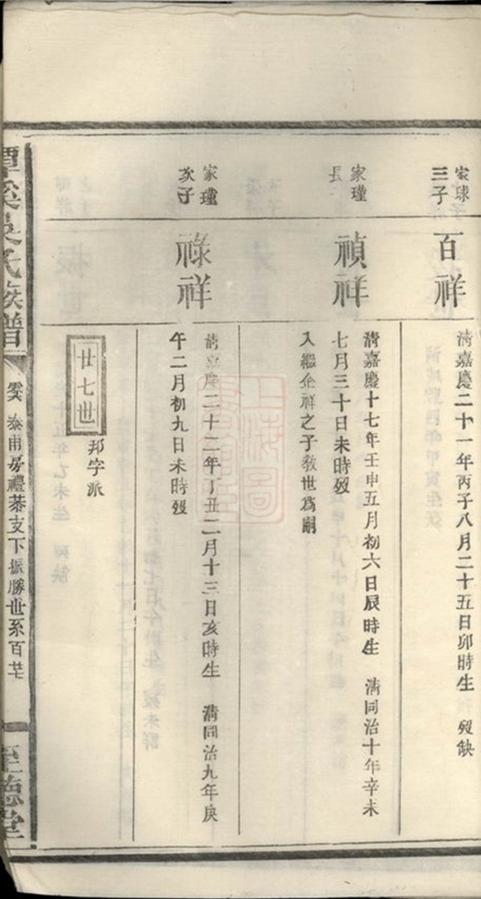 家球
三子
百祥
清嘉慶二十一年丙子八月二十五日卯時生 歿缺
家瑾
長
禎祥
清嘉慶十七年壬申五月初六日辰時生 清同治十年辛未
七月三十日未時歿
入繼企祥之子敎世爲嗣
家瑾
次子
祿祥
清嘉慶二十二年丁丑二月十三日亥時生 清同治九年庚
午二月初九日未時歿
廿七世
邦字派
潭溪吳氏族譜
泰甫房禮茶支下振勝世系百廿
至德堂